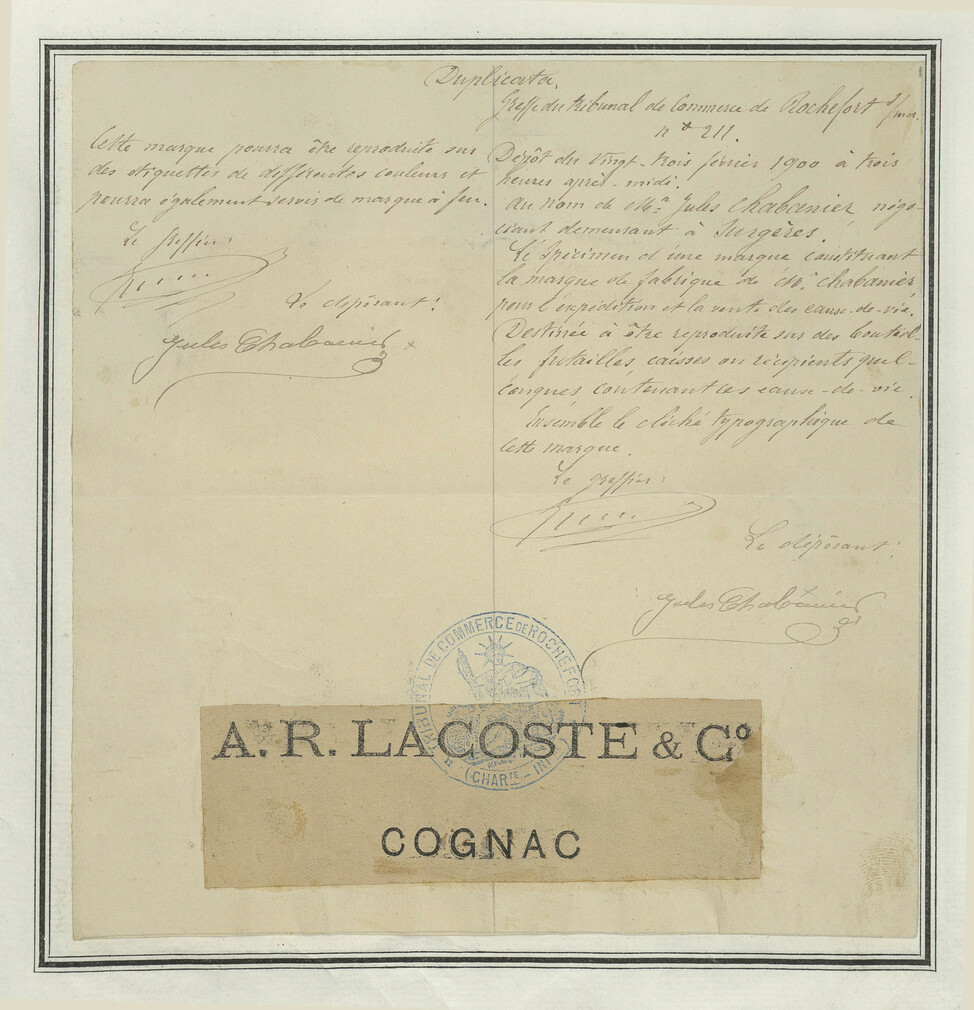 Duplicata.
Greffe du tribunal de Commerce de Rochefort s/mer.
n° 211.
Dépôt du Vingt-trois février 1900 à trois
heures après-midi.
Au nom de Mr. Jules Chabanier négo-
ciant demeurant à Surgères.
Le Spécimen d'une marque constituant
la marque de fabrique de Mr. Chabanier
pour l'expédition et la vente des eaux-de-vie.
Destinée à être reproduite sur des bouteil-
les futailles, caisses ou récipients quel-
conques contenant ces eaux-de-vie.
Ensemble le cliché typographique de
cette marque.
Le greffier:
Le déposant:
Jules Chabanier
Cette marque pourra être reproduite sur
des étiquettes de différentes couleurs et
pourra également servir de marque à feu.
Le greffier:
Le déposant:
Jules Chabanier
TRIBUNAL DE COMMERCE DE ROCHEFORT
(CHARTE-INF
A. R. LACOSTE & Co
COGNAC